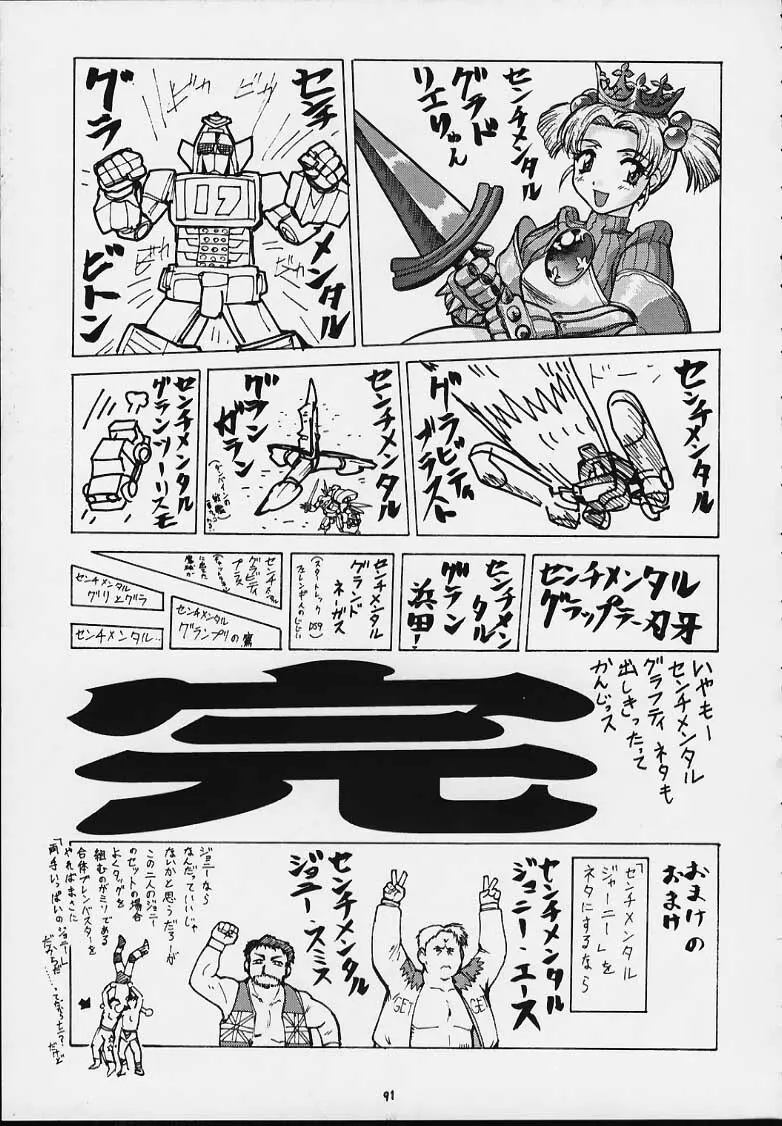 センチメンタル
グラド
リエりゅん
センチ
メンタル
グラ
ビトン
ピカ
ピカ
ピカ
ピカ
17
センチメンタル
グラビティ
ブラスト
ドーン
センチメンタル
グラン
ガラン
センチメンタル
グランツーリスモ
センチメンタル
グラップラー刃牙
センチメン
タル
グラン
浜田!
センチメンタル
グランド
ネーガス
(スタートレックDS9
フェレンギ人のじじい)
センチメンタル
グラビティ
プラス
センチメンタル
グランプリの鷹
センチメンタル
グリとグラ
センチメンタル…
いやもー
センチメンタル
グラフティネタも
出しきったって
かんじっス
完
おまけの
おまけ
「センチメンタル
ジャーニー」を
ネタにするなら
センチメンタル
ジョニー・エース
GET
GET
センチメンタル
ジョニー・スミス
ジョニーなら
なんだっていいじゃ
ないかと思うだろーが
この二人のジョニー
のセットの場合
よくタッグを
組むのがミソである
合体ブレンバスターを
やればまさに
「両手いっぱいのジョニー」
91